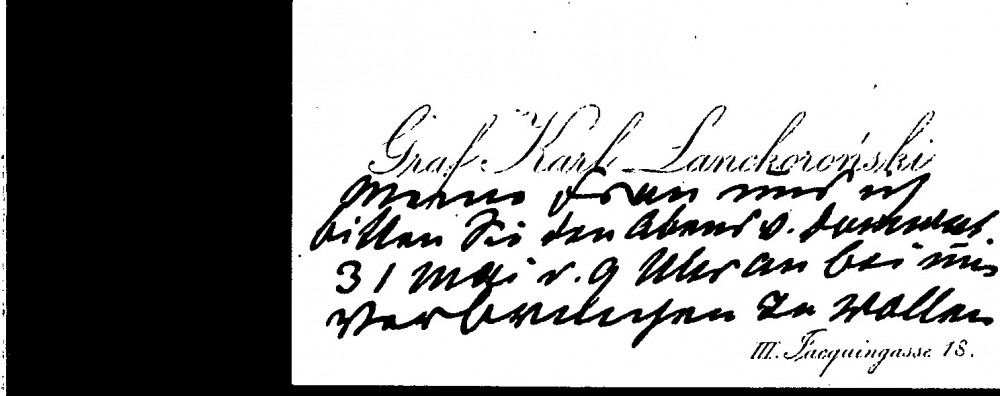 Graf Karl Lanckoroński
Meine Frau und ich
bitten Sie den Abend d.
31 Mai v. 9 Uhr an bei uns
verbringen zu wollen
III. Jacquingasse 18.